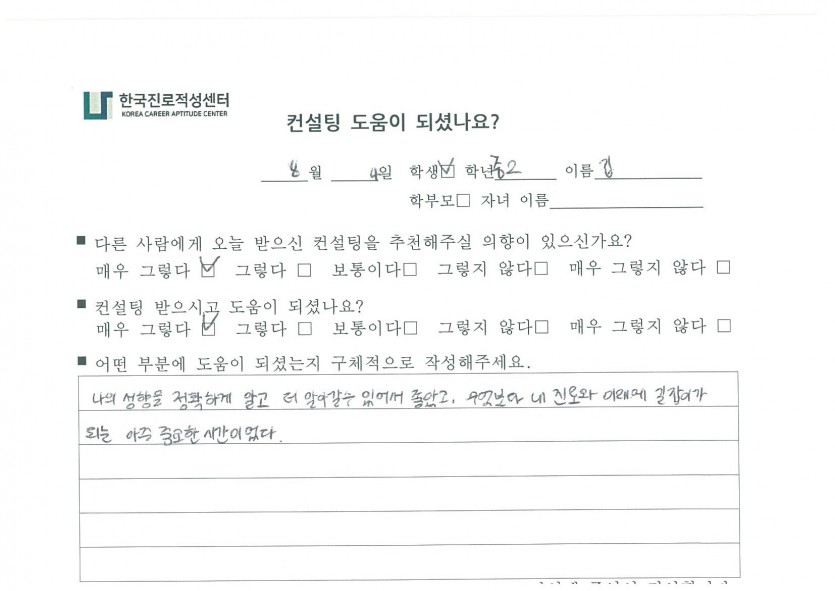 한국진로적성센터
KOREA CAREER APTITUDE CENTER
컨설팅 도움이 되셨나요?
8월 4일 학생☑ 학년 중2 이름 김
학부모□ 자녀 이름
■ 다른 사람에게 오늘 받으신 컨설팅을 추천해주실 의향이 있으신가요?
매우 그렇다 ☑ 그렇다 □ 보통이다□ 그렇지 않다□ 매우 그렇지 않다 □
■ 컨설팅 받으시고 도움이 되셨나요?
매우 그렇다 ☑ 그렇다 □ 보통이다□ 그렇지 않다□ 매우 그렇지 않다 □
■ 어떤 부분에 도움이 되셨는지 구체적으로 작성해주세요.
나의 성향을 정확하게 알고 더 알아갈수 있어서 좋았고, 무엇보다 내 진로와 미래에 길잡이가
되는 아주 중요한 시간이었다.